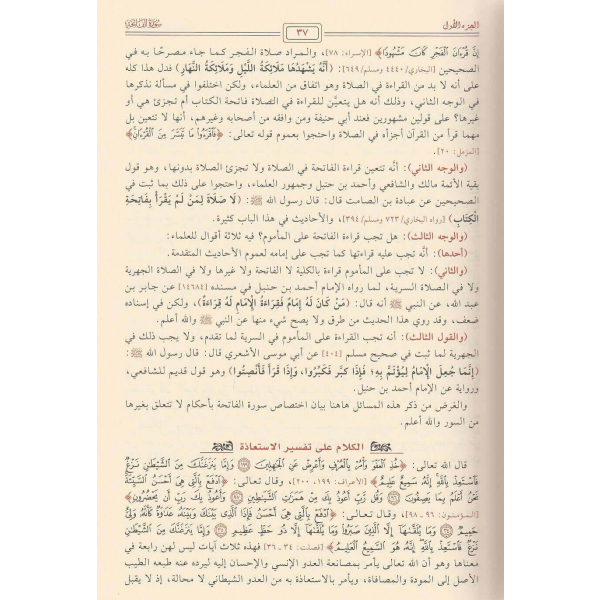 الجزء الأول
٣٧
سورة الفاتحة
إِنَّ قُرْءَانَ ٱلْفَجْرِ كَانَ مَشْهُودًا﴾ [الإسراء: ٧٨]، والمراد صلاة الفجر كما جاء مصرحًا به في
الصحيحين [البخاري/٤٤٤٠ ومسلم/٦٤٩]: (أَنَّهُ يَشْهَدُهَا مَلَائِكَةُ اللَّيْلِ وَمَلَائِكَةُ النَّهَارِ) فدل هذا كله
على أنه لا بد من القراءة في الصلاة وهو اتفاق من العلماء، ولكن اختلفوا في مسألة نذكرها
في الوجه الثاني، وذلك أنه هل يتعيَّن للقراءة في الصلاة فاتحة الكتاب أم تجزئ هي أو
غيرها؟ على قولين مشهورين فعند أبي حنيفة ومن وافقه من أصحابه وغيرهم، أنها لا تتعين بل
مهما قرأ من القرآن أجزأه في الصلاة واحتجوا بعموم قوله تعالى: ﴿فَٱقْرَءُوا۟ مَا تَيَسَّرَ مِنَ ٱلْقُرْءَانِ﴾
[المزمل: ٢٠].
(والوجه الثاني): أنَّه تتعين قراءة الفاتحة في الصلاة ولا تجزئ الصلاة بدونها، وهو قول
بقية الأئمة مالك والشافعي وأحمد بن حنبل وجمهور العلماء، واحتجوا على ذلك بما ثبت في
الصحيحين عن عبادة بن الصامت قال: قال رسول الله ﷺ: (لَا صَلَاةَ لِمَنْ لَمْ يَقْرَأْ بِفَاتِحَةِ
الْكِتَابِ) [رواه البخاري/٧٢٣ ومسلم/٣٩٤]، والأحاديث في هذا الباب كثيرة.
(والوجه الثالث): هل تجب قراءة الفاتحة على المأموم؟ فيه ثلاثة أقوال للعلماء:
(أحدها): أنَّه تجب عليه قراءتها كما تجب على إمامه لعموم الأحاديث المتقدمة.
(والثاني): لا تجب على المأموم قراءة بالكلية لا الفاتحة ولا غيرها ولا في الصلاة الجهرية
ولا في الصلاة السرية، لما رواه الإمام أحمد بن حنبل في مسنده [١٤٦٨٤] عن جابر بن
عبد الله، عن النبي ﷺ أنه قال: (مَنْ كَانَ لَهُ إِمَامٌ فَقِرَاءَةُ الْإِمَامِ لَهُ قِرَاءَةٌ)، ولكن في إسناده
ضعف، وقد روي هذا الحديث من طرق ولا يصح شيء منها عن النبي ﷺ والله أعلم.
(والقول الثالث): أنه تجب القراءة على المأموم في السرية لما تقدم، ولا يجب ذلك في
الجهرية لما ثبت في صحيح مسلم [٤٠٤] عن أبي موسى الأشعري قال: قال رسول الله ﷺ:
(إِنَّمَا جُعِلَ الْإِمَامُ لِيُؤْتَمَّ بِهِ؛ فَإِذَا كَبَّرَ فَكَبِّرُوا، وَإِذَا قَرَأَ فَأَنْصِتُوا) وهو قول قديم للشافعي،
ورواية عن الإمام أحمد بن حنبل.
والغرض من ذكر هذه المسائل هاهنا بيان اختصاص سورة الفاتحة بأحكام لا تتعلق بغيرها
من السور والله أعلم.
الكلام على تفسير الاستعاذة
قال الله تعالى: ﴿خُذِ ٱلْعَفْوَ وَأْمُرْ بِٱلْعُرْفِ وَأَعْرِضْ عَنِ ٱلْجَٰهِلِينَ ۝ وَإِمَّا يَنزَغَنَّكَ مِنَ ٱلشَّيْطَٰنِ نَزْغٌ
فَٱسْتَعِذْ بِٱللَّهِ إِنَّهُۥ سَمِيعٌ عَلِيمٌ﴾ [الأعراف: ١٩٩، ٢٠٠]، وقال تعالى: ﴿ٱدْفَعْ بِٱلَّتِى هِىَ أَحْسَنُ ٱلسَّيِّئَةَ
نَحْنُ أَعْلَمُ بِمَا يَصِفُونَ ۝ وَقُل رَّبِّ أَعُوذُ بِكَ مِنْ هَمَزَٰتِ ٱلشَّيَٰطِينِ ۝ وَأَعُوذُ بِكَ رَبِّ أَن يَحْضُرُونِ﴾
[المؤمنون: ٩٦ ـ ٩٨]، وقال تعالى: ﴿ٱدْفَعْ بِٱلَّتِى هِىَ أَحْسَنُ فَإِذَا ٱلَّذِى بَيْنَكَ وَبَيْنَهُۥ عَدَٰوَةٌ كَأَنَّهُۥ وَلِىٌّ
حَمِيمٌ ۝ وَمَا يُلَقَّىٰهَآ إِلَّا ٱلَّذِينَ صَبَرُوا۟ وَمَا يُلَقَّىٰهَآ إِلَّا ذُو حَظٍّ عَظِيمٍ ۝ وَإِمَّا يَنزَغَنَّكَ مِنَ ٱلشَّيْطَٰنِ
نَزْغٌ فَٱسْتَعِذْ بِٱللَّهِ إِنَّهُۥ هُوَ ٱلسَّمِيعُ ٱلْعَلِيمُ﴾ [فصلت: ٣٤ ـ ٣٦] فهذه ثلاث آيات ليس لهن رابعة في
معناها وهو أن الله تعالى يأمر بمصانعة العدو الإنسي والإحسان إليه ليرده عنه طبعه الطيب
الأصل إلى المودة والمصافاة، ويأمر بالاستعاذة به من العدو الشيطاني لا محالة، إذ لا يقبل